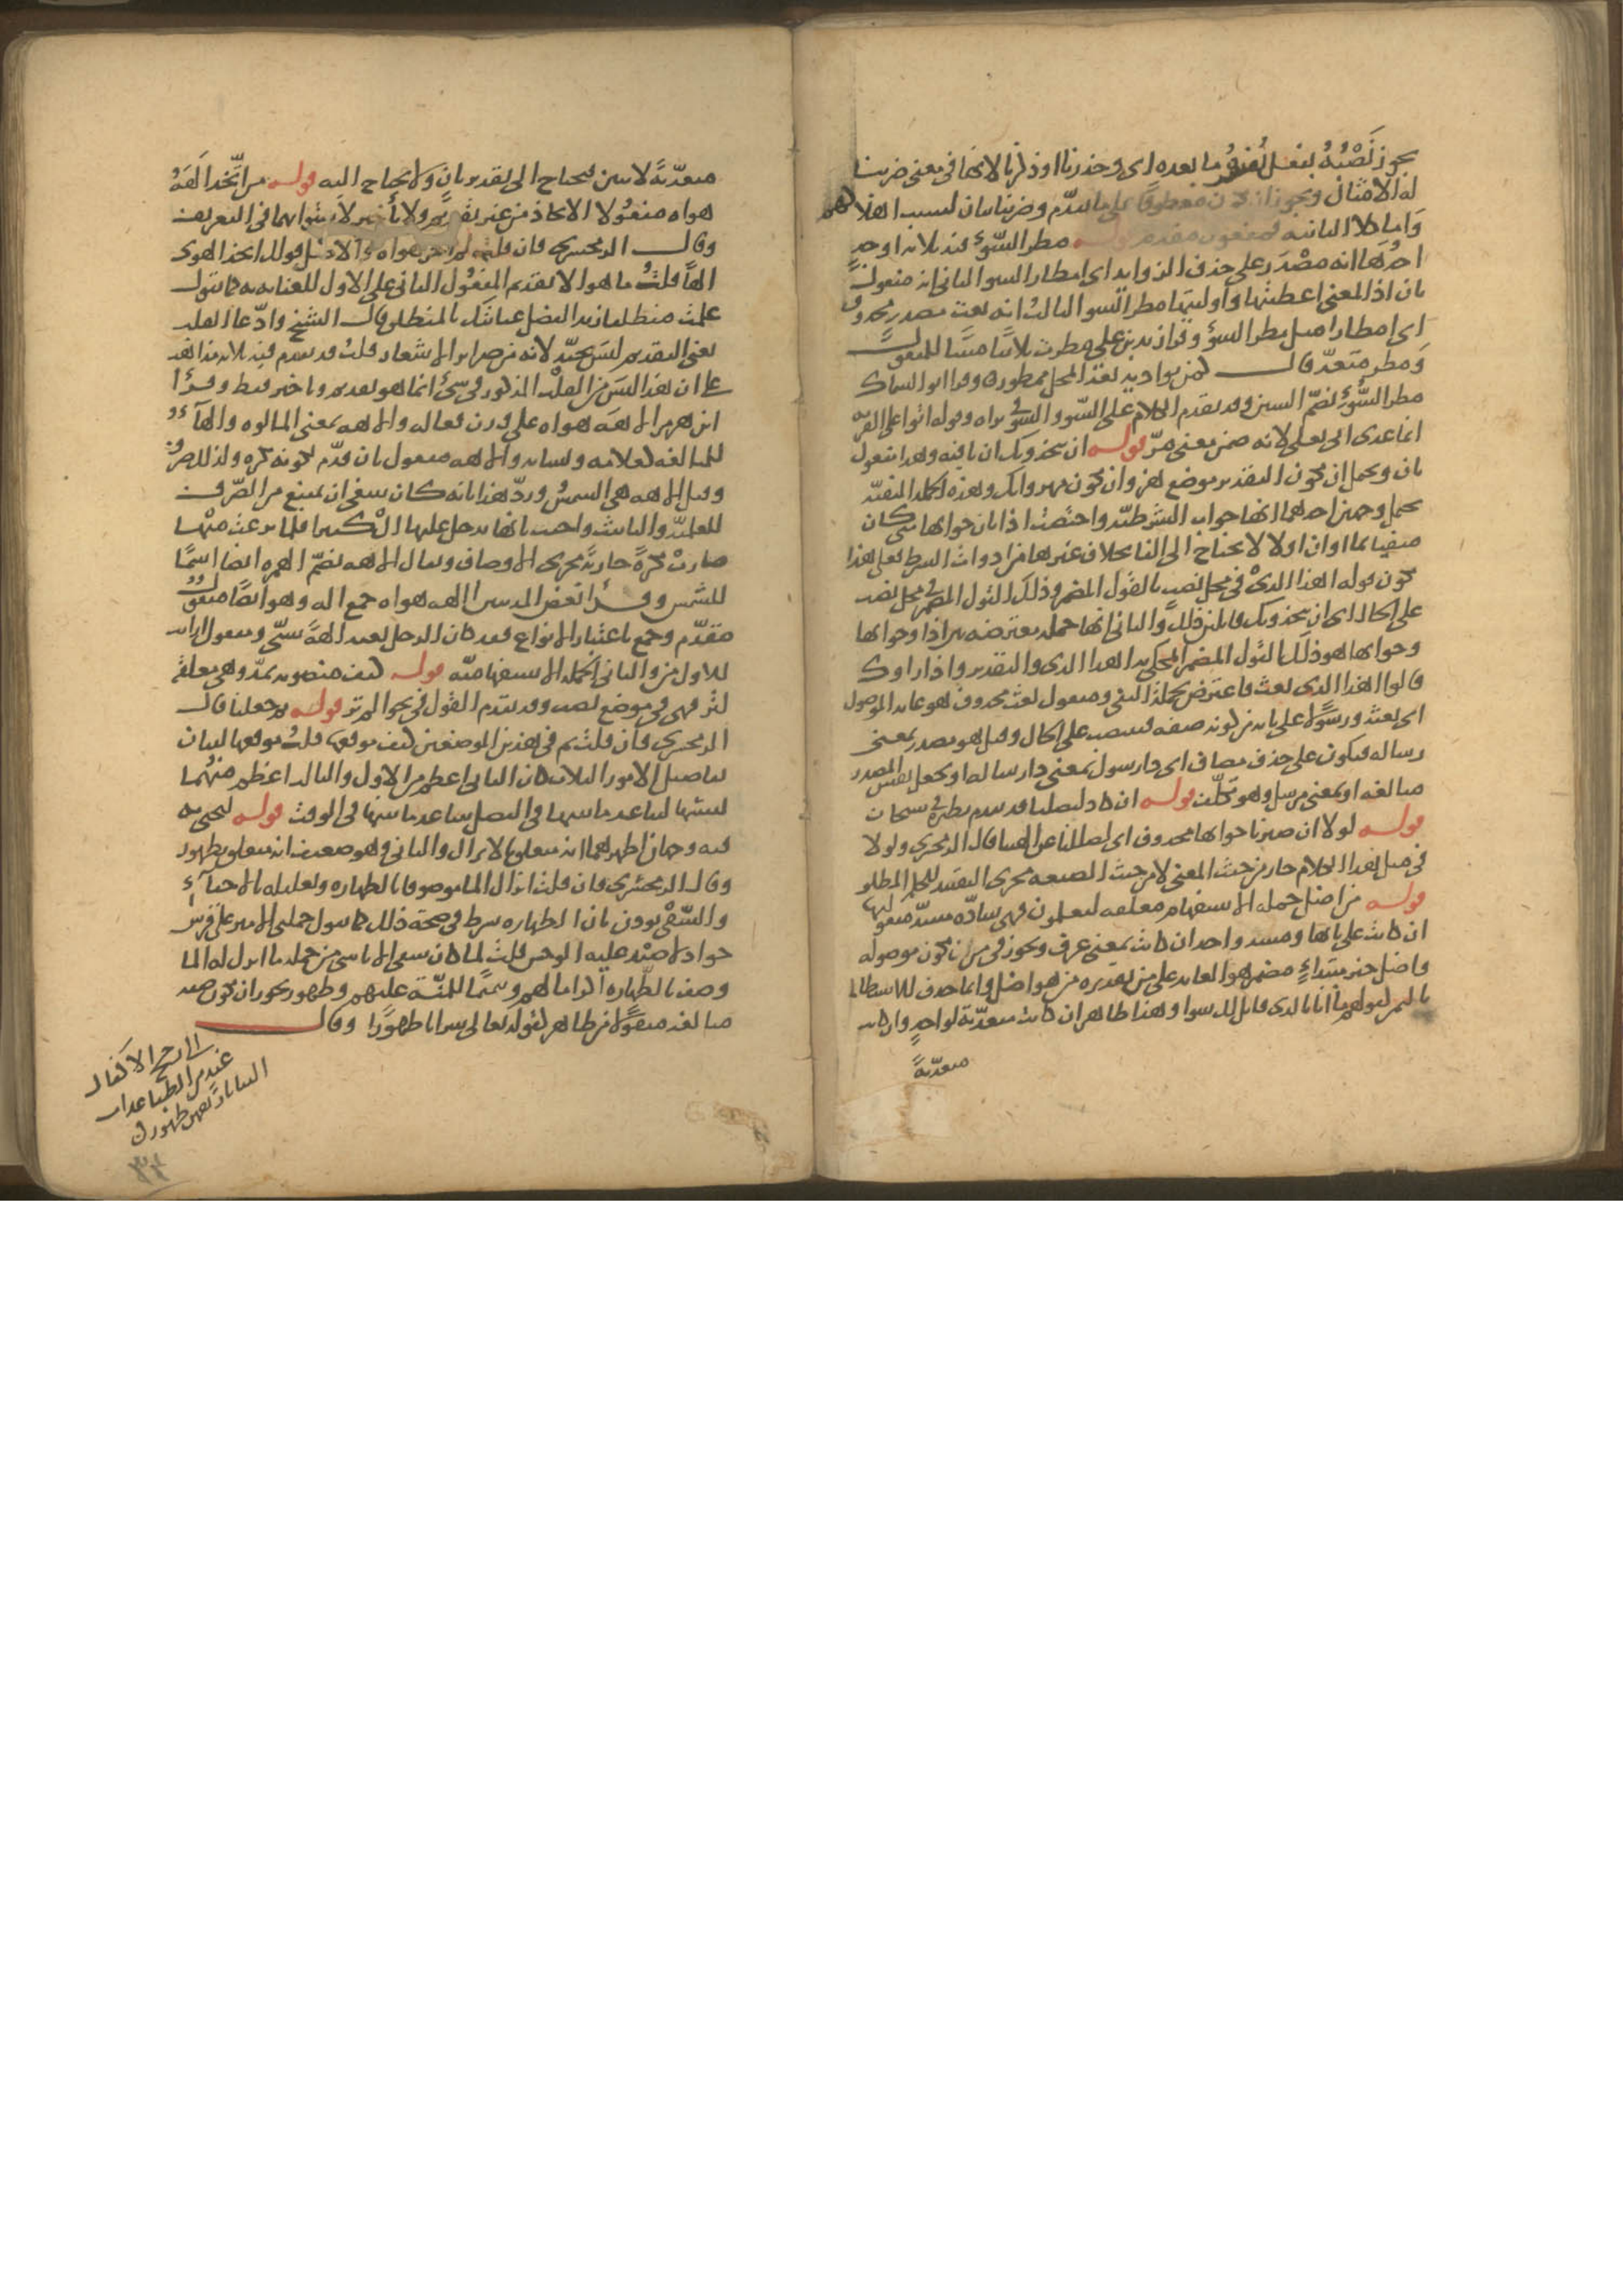 يجوز نصبه بفعل يفسره ما بعده اى وحذرنا او ذكرنا لانها فى معنى ضربنا
له الامثال ويجوز ان يكون معطوفا على ما تقدم وضربنا بيان لسبب اهلاكهم
واما كلا الثانية فمفعول مقدم قوله مطر السوء فيه ثلاثة اوجه
احدها انه مصدر على حذف الزوايد اى امطار السوء الثانى انه مفعول
ثان اذ المعنى اعطيتها واوليتها مطر السوء الثالث انه نعت مصدر محذوف
اى امطارا مثل مطر السوء وقرا زيد بن على مطرت ثلاثيا مبنيا للمفعول
ومطر متعد قال لمن بواديه بعد المحل ممطور وقرا ابو السماك
مطر السوء بضم السين وقد تقدم الكلام على السوء والسوء فى براه وقوله اتوا على القرية
انما عدى اتى بعلى لانه ضمن معنى مرّ قوله ان يتخذونك ان نافية وهزوا مفعول
ثان ويحتمل ان يكون التقدير موضع هزء وان يكون مهزوا بك وهذه الجملة المنفية
تحتمل وجهين احدهما انها جواب الشرطية واختصت اذا بان جوابها متى كان
منفيا بما او ان او لا لا يحتاج الى الفا بخلاف غيرها من ادوات الشرط فعلى هذا
يكون قوله اهذا الذى فى محل نصب بالقول المضمر وذلك القول المضمر فى محل نصب
على الحال اى ان يتخذونك قايلين ذلك والثانى انها جملة معترضة بين اذا وجوابها
وجوابها هو ذلك القول المضمر المحكى به اهذا الذى والتقدير واذا راوك
قالوا اهذا الذى بعث فاعترض بجملة النفى ومفعول بعث محذوف هو عايد الموصول
اى بعثه ورسولا على بابه من كونه صفة فينتصب على الحال وقيل هو مصدر بمعنى
رسالة فيكون على حذف مضاف اى ذا رسول بمعنى ذا رسالة او يجعل نفس المصدر
مبالغة او بمعنى مرسل وهو تكلف قوله ان كاد ليضلنا قد تقدم نظيره فى سبحان
قوله لولا ان صبرنا جوابها محذوف اى لضللنا عن الهتنا قال الزمخشرى ولولا
فى مثل هذا الكلام جار من حيث المعنى لا من حيث الصنعة مجرى التقييد للحكم المطلق
قوله من اضل جملة الاستفهام معلقة ليعلمون فهى سادة مسد مفعوليها
ان كانت على بابها ومسد واحد ان كانت بمعنى عرف ويجوز فى من ان يكون موصولة
واضل خبر مبتداء مضمر هو العايد على من تقديره من هو اضل وانما حذف للاستطالة
بالتمييز كقولهم ما انا بالذى قايل لك سوا وهذا ظاهر ان كانت متعدية لواحد وان كانت
متعدية
متعدية لاثنين فيحتاج الى تقدير ثان ولا يحتاج اليه قوله من اتخذ الهه
هواه مفعولا الاتخاذ من غير تقديم ولا تأخير لاستوايهما فى التعريف
وقال الزمخشرى فان قلت لم اخر هواه والاصل قولك اتخذ الهوى
الها قلت ما هو الا تقديم المفعول الثانى على الاول للعناية به كما تقول
علمت منطلقا زيدا لفضل عنايتك بالمنطلق قال الشيخ وادعا القلب
يعنى التقديم ليس بجيد لانه من ضراير الاشعار قلت قد تقدم فيه ثلاثة مذاهب
على ان هذا ليس من القلب المذكور فى شئ انما هو تقديم وتاخير فقط وقرأ
ابن هرمز الاهة هواه على وزن فعالة والاهة بمعنى المالوه والهاء
للمبالغة كعلامة ونسابة والاهة مفعول ثان قدم لكونه نكرة ولذلك صرف
وقيل الاهة هى الشمس ورد هذا بانه كان ينبغى ان يمتنع من الصرف
للعلمية والتانيث واجيب بانها تدخل عليها ال كثيرا فلما نزعت منها
صارت نكرة جارية مجرى الاوصاف ويقال الاهة بضم الهمزه ايضا اسما
للشمس وقرأ بعض المدنيين االهه هواه جمع اله وهو ايضا مفعول
مقدم وجمع باعتبار الانواع فقد كان الرجل يعبد الهة شتى ومفعول ارايت
الاول من والثانى الجملة الاستفهامية قوله كيف منصوبة بمد وهى معلقة
لتر فهى فى موضع نصب وقد تقدم القول فى نحو الم تر قوله ثم جعلنا قال
الزمخشرى فان قلت ثم فى هذين الموضعين كيف موقعها قلت موقعها لبيان
تفاضل الامور الثلاثة كان الثانى اعظم من الاول والثالث اعظم منهما
تشبيها لتباعد ما بينها فى الفضل بتباعد ما بينها فى الوقت قوله لنحيى به
فيه وجهان اظهرهما انه متعلق بالانزال والثانى وهو ضعيف انه متعلق بطهور
وقال الزمخشرى فان قلت انزال الما موصوفا بالطهارة وتعليله بالاحيآء
والسقى يوذن بان الطهارة شرط فى صحة ذلك كما تقول حملنى الامير على فرس
جواد لاصيد عليه الوحش قلت لما كان سقى الاناسى من جملة ما انزل له الما
وصف بالطهارة اكراما لهم وتتميما للمنة عليهم وطهور يجوز ان يكون صفة
مبالغة منقولا من طاهر كقوله تعالى شرابا طهورا وقال
الى رجح الاكفال
غيد من الظبا عذاب
الثنايا ريقهن طهور